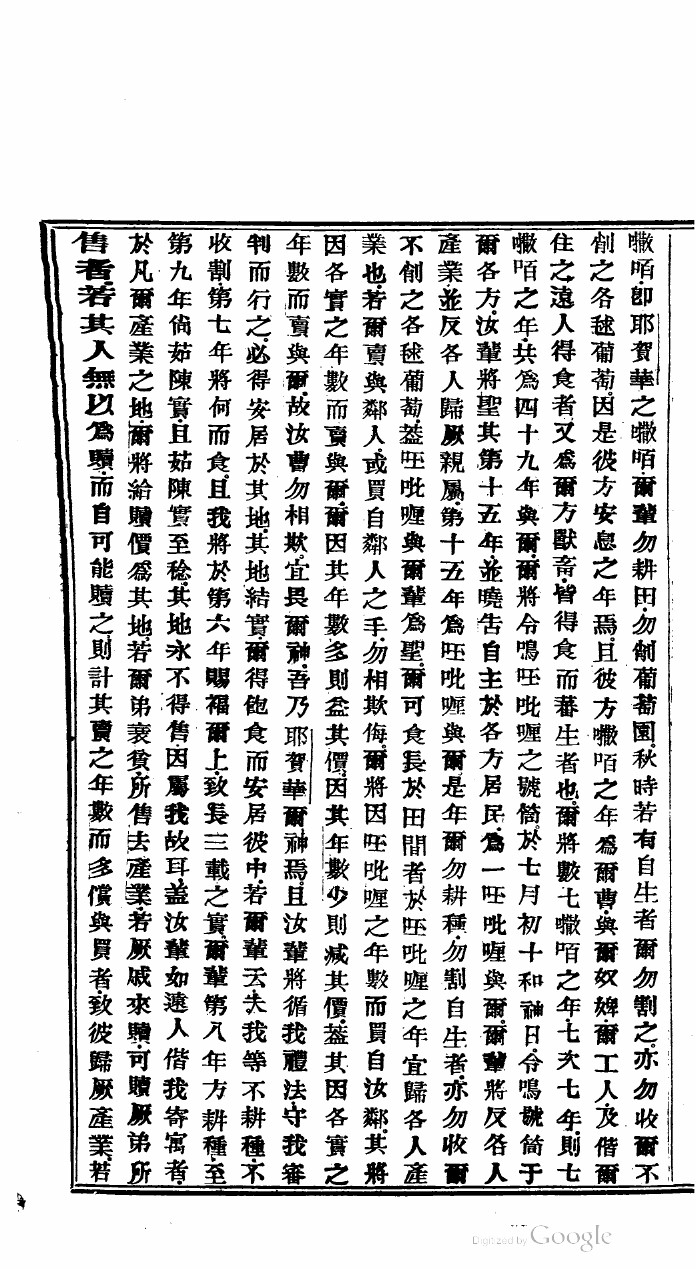 囐咟即耶賀華之囐咟爾輩勿耕田勿創葡萄園秋時若有自生者爾勿割之亦勿收爾不
創之各毬葡萄因是彼方安息之年焉且彼方囐咟之年為爾曹與爾奴婢爾工人及偕爾
住之遠人得食者又為爾方獸畜皆得食而蕃生者也爾將數七囐咟之年七次七年則七
囐咟之年共為四十九年與爾爾將令鳴㕵吡喱之號筒於七月初十和神日令鳴號筒于
爾各方汝輩將聖其第十五年並曉告自主於各方居民為一㕵吡喱與爾爾輩將反各人
產業並反各人歸厥親屬第十五年為㕵吡喱與爾是年爾勿耕種勿割自生者亦勿收爾
不創之各毬葡萄葢㕵吡喱與爾輩為聖爾可食長於田間者於㕵吡喱之年宜歸各人產
業也若爾賣與鄰人或買自鄰人之手勿相欺侮爾將因㕵吡喱之年數而買自汝鄰其將
因各實之年數而賣與爾爾因其年數多則益其價因其年數少則減其價葢其因各實之
年數而賣與爾故汝曹勿相欺宜畏爾神吾乃耶賀華爾神焉且汝輩將循我禮法守我審
判而行之必得安居於其地其地結實爾得飽食而安居彼中若爾輩云夫我等不耕種不
收割第七年將何而食且我將於第六年賜福爾上致長三載之實爾輩第八年方耕種至
第九年尚茹陳實且茹陳實至稔其地永不得售因屬我故耳蓋汝輩如遠人偕我寄寓者
於凡爾產業之地爾將給贖價為其地若爾弟衰貧所售去產業若厥戚來贖可贖厥弟所
售者若其人無以為贖而自可能贖之則計其賣之年數而多償與買者致彼歸厥產業若
Digitized by Google